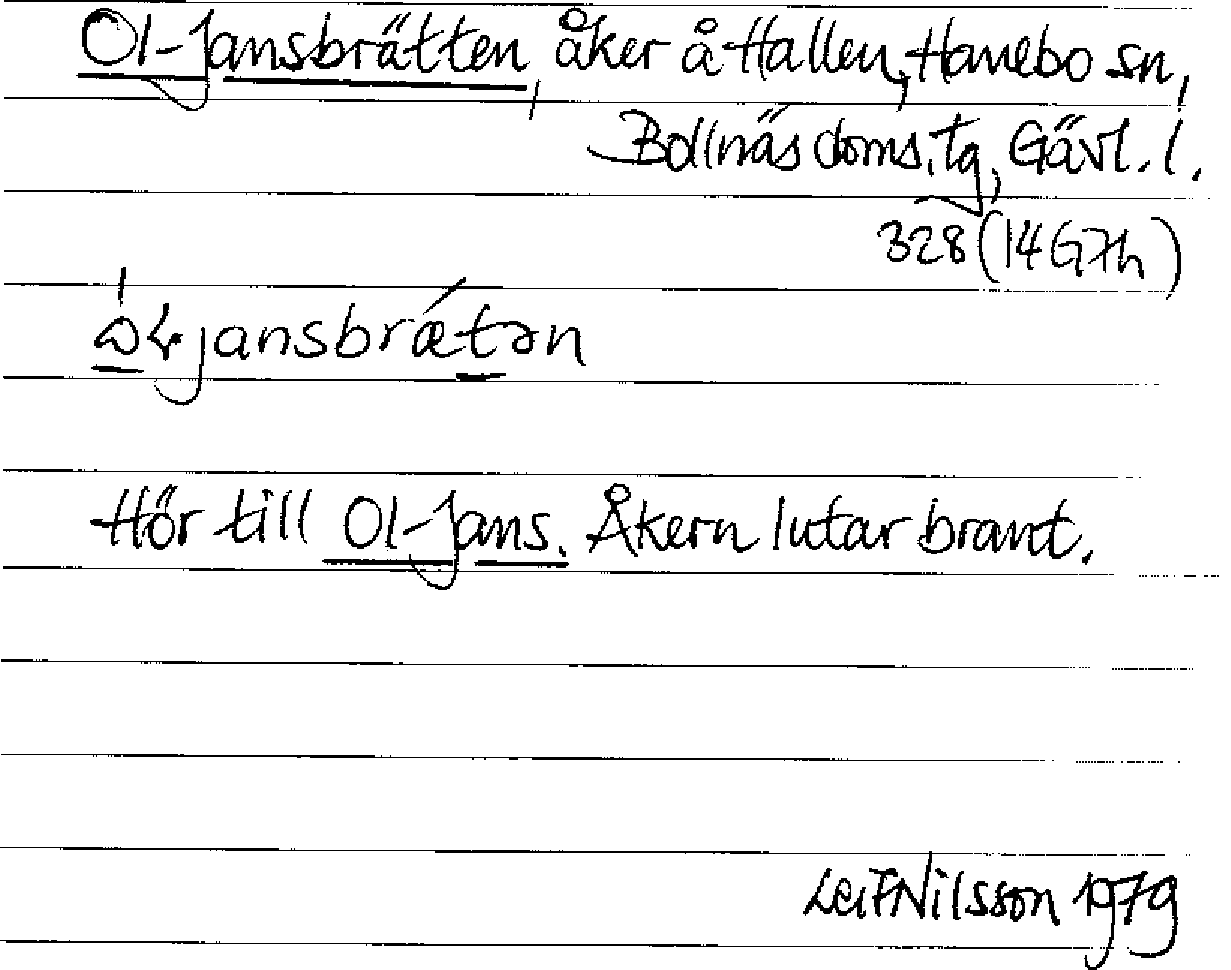 Ol-Jansbrätten, åker å Hallen, Hanebo sn,
Bollnäs doms.tg, Gävl. l.
328 (14G7h)
jansbrǽtən
Hör till Ol-Jans. Åkern lutar brant.
Leif Nilsson 1979